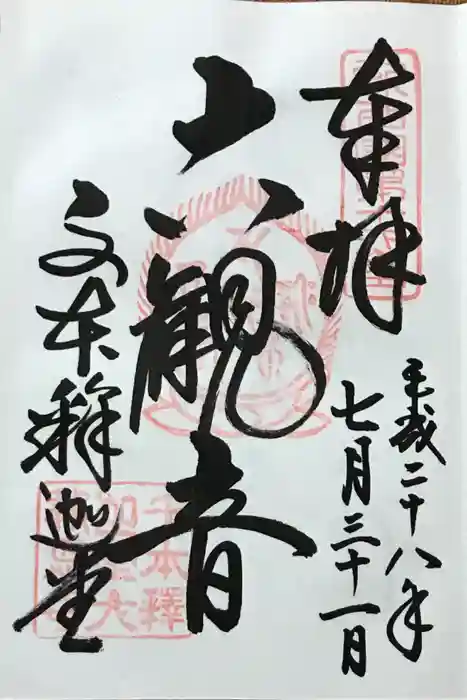 奉拝
平成二十八年
七月三十一日
六観音
千本釋迦堂
千本釋
迦堂大